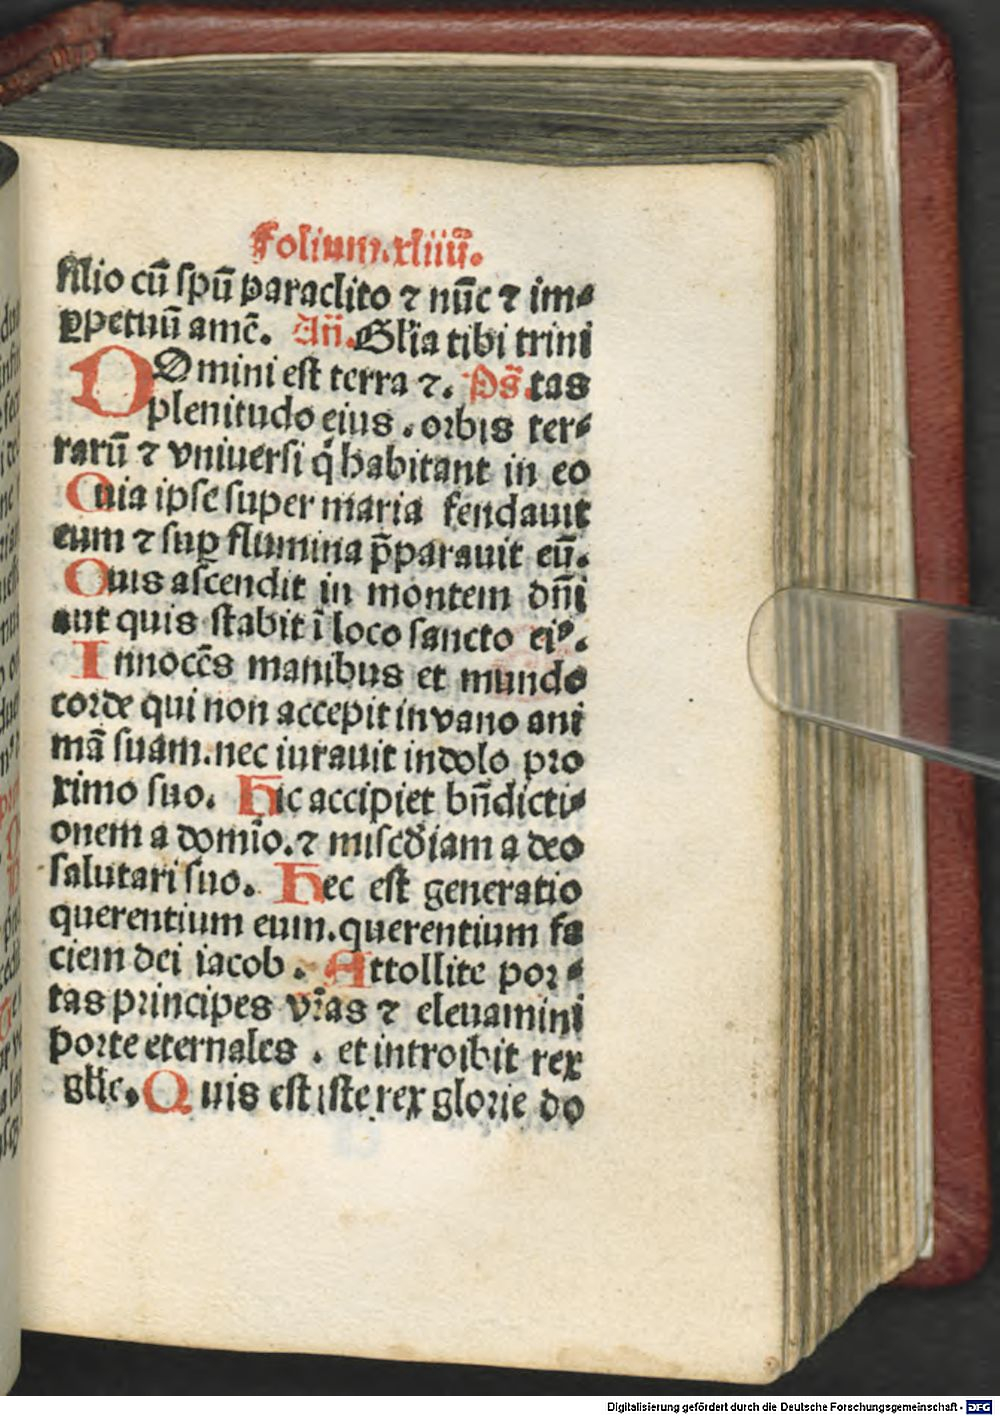 Folium.xliiii.
filio cū spū paraclito ⁊ nūc ⁊ im⸗
ꝑpetuū amē. Añ. Glīa tibi trini
DOmini est terra ⁊. Ps̄. tas
plenitudo eius . orbis ter⸗
rarū ⁊ vniuersi q̇ habitant in eo
Quia ipse super maria fendauit
eum ⁊ suꝑ flumina p̄parauit eū.
Quis ascendit in montem dn̄i
aut quis stabit ī loco sancto eiꝰ.
Innocēs manibus et mundo
corde qui non accepit in vano ani
mā suam. nec iurauit in dolo pro
ximo suo. Hic accipiet bn̄dicti⸗
onem a domīo. ⁊ miscd̄iam a deo
salutari suo. Hec est generatio
querentium eum. querentium fa
ciem dei iacob . Attollite por⸗
tas principes vr̄as ⁊ eleuamini
porte eternales . et introibit rex
glīe. Quis est iste rex glorie do
Digitalisierung gefördert durch die Deutsche Forschungsgemeinschaft - DFG